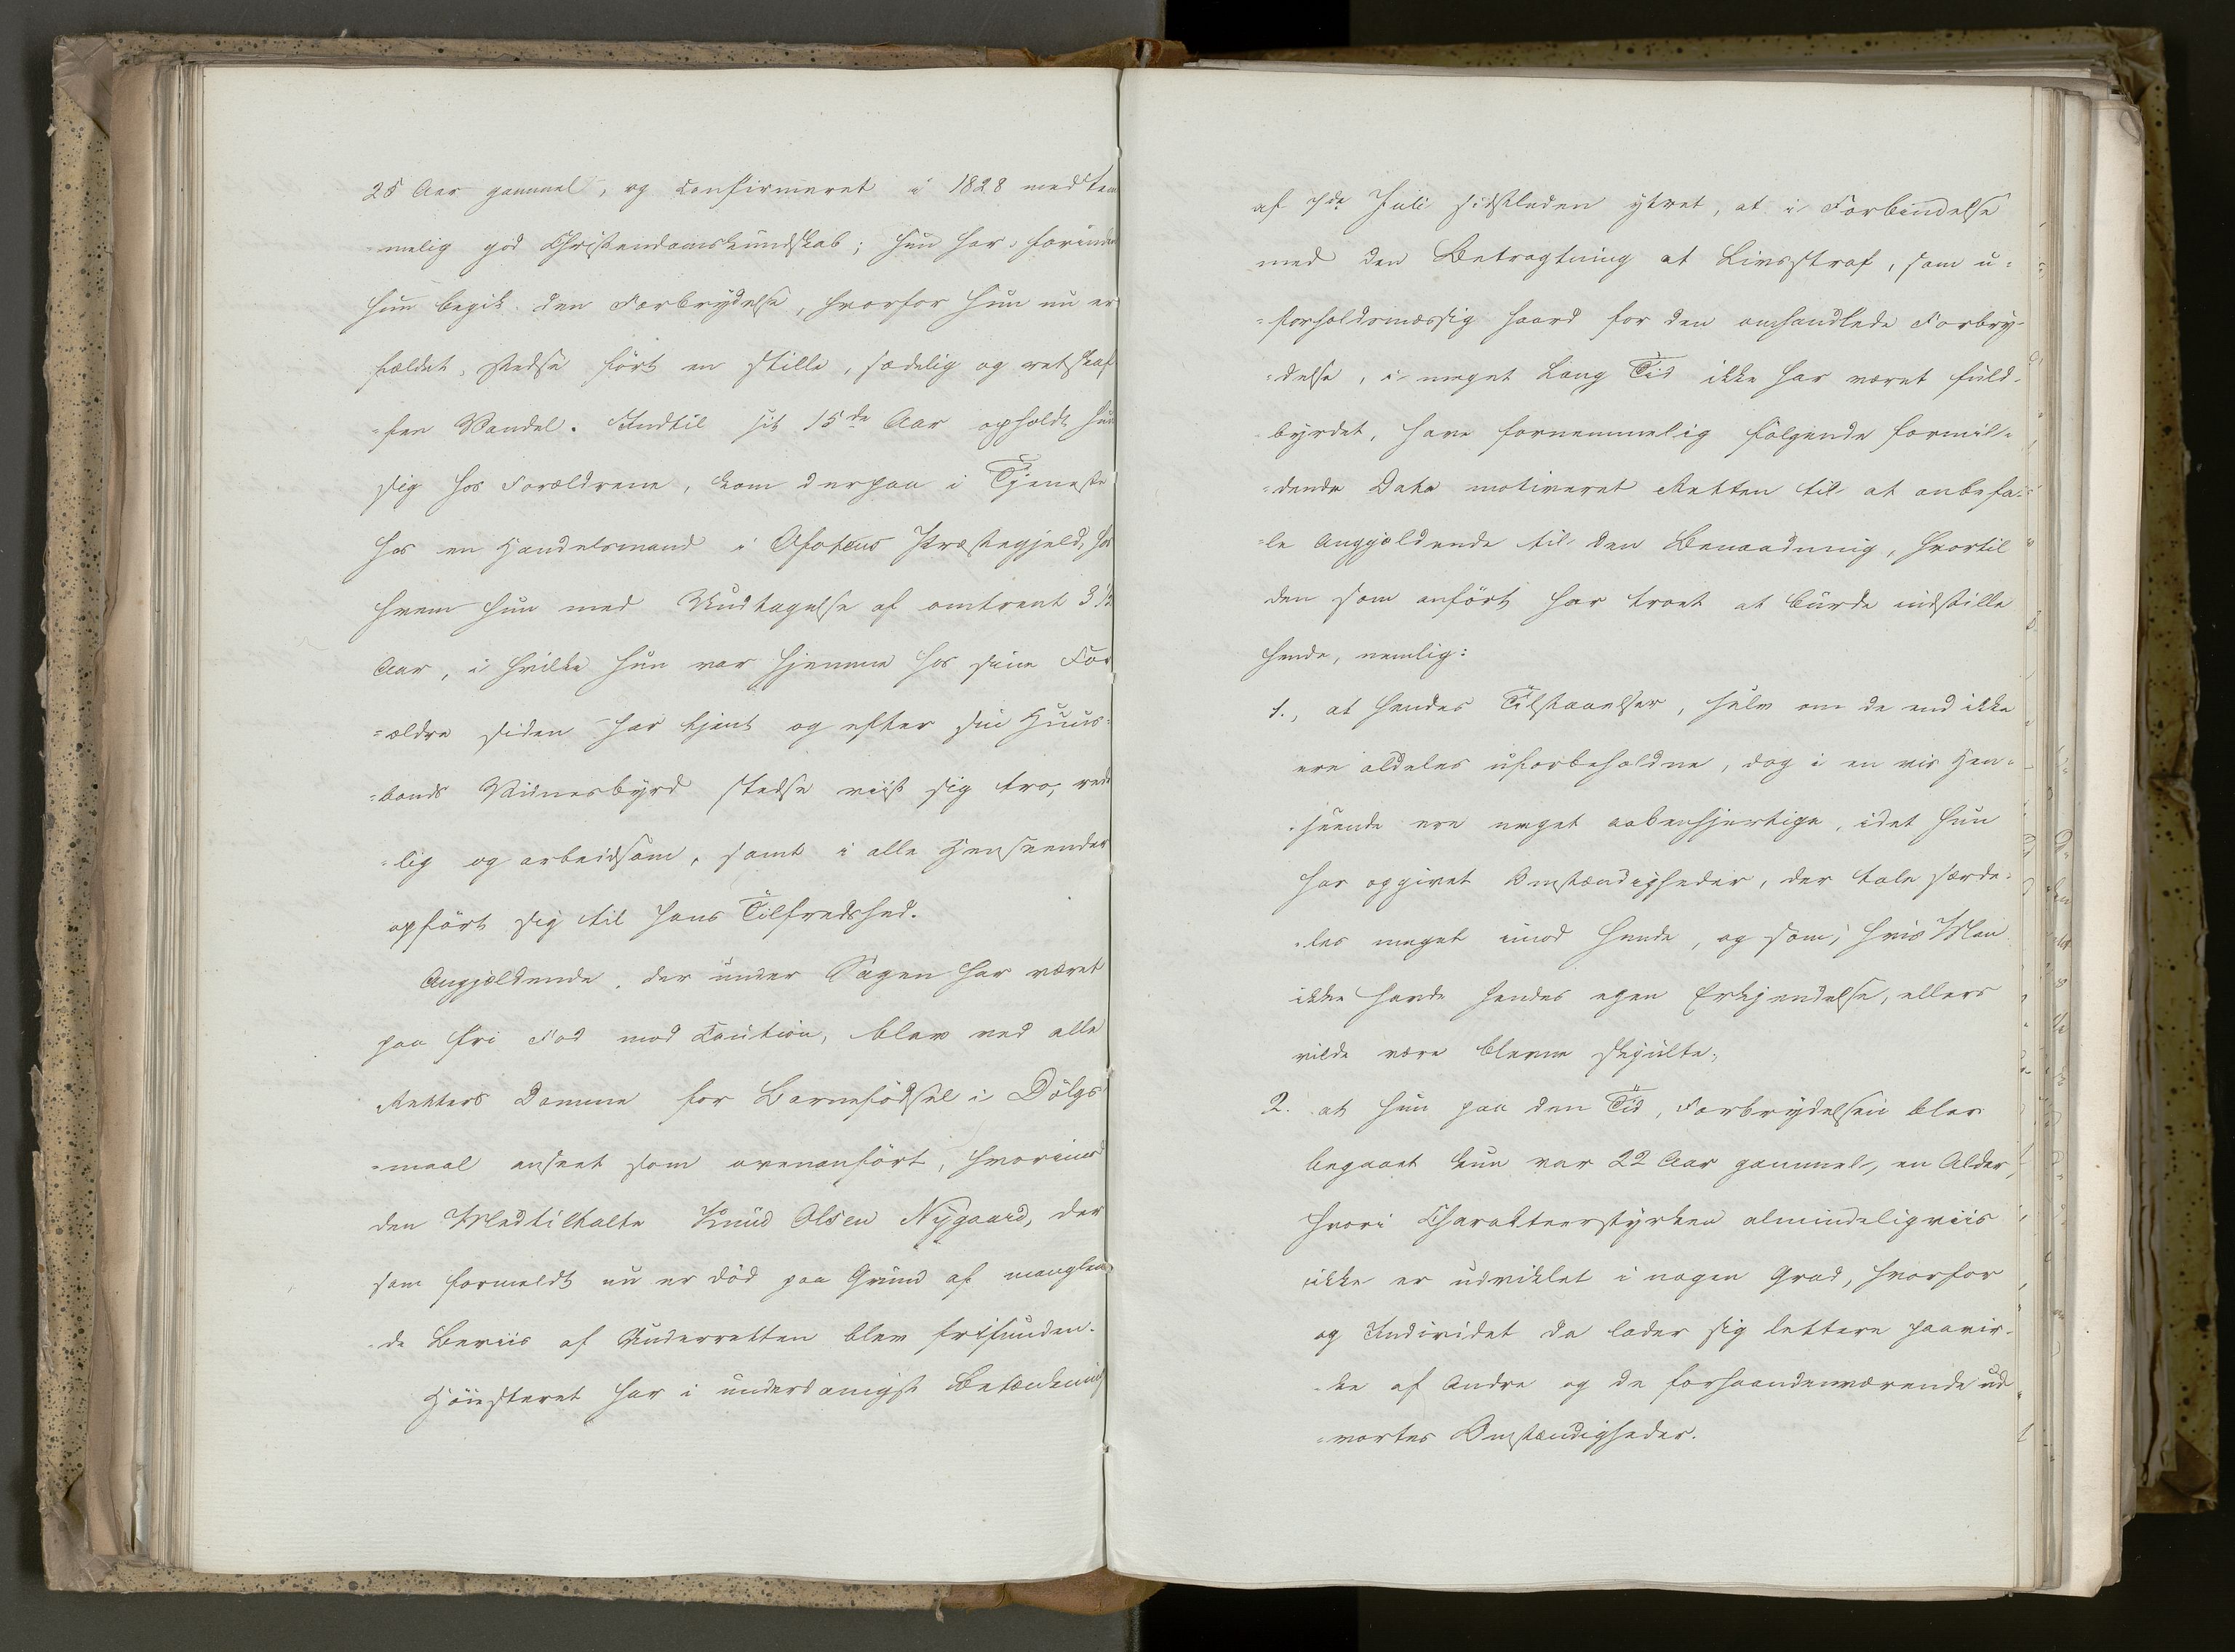 25 Aar gammel, og confirmeret i 1828 med tem
=melig god Christendomskundskab; hun har, forinden
hun begik den Forbrydelse, hvorfor hun nu er
fældet, stedse ført en stille, sædelig og retskaf
=fen Vandel. Indtil sit 15de Aar opholdt hun
sig hos Forældrene, kom derpaa i Tjeneste
hos en Handelsmand i Ofotens Præstegjeld, hos
hvem hun med Undtagelse af omtrent 3 1/2
Aar, i hvilke hun var hjemme hos sine For
=ældre siden har tjent og efter sin Huus=
=bonds Vidnesbyrd stedse viist sig tro, rede
=lig og arbeidsom, samt i alle Henseender
opført sig til hans Tilfredshed.
Angjældende, der under Sagen har været
paa fri Fod mod Caution, blev ved alle
Retters Domme for Barnefødsel i Dølgs
=maal anseet som ovenanført, hvorimod
den Medtiltalte Knud Olsen Nygaard, der
som formeldt nu er død paa Grund af manglen
=de Beviis af Underretten blev frifunden.
Höiesteret har i underdanigst Betænkning
af 7de Juli sidstleden ytret, at i Forbindelse
med den Betragtning at Livsstraf, som u=
=forholdsmæssig haard for den omhandlede Forbry-
=delse, i meget lang Tid ikke har været fuld-
byrdet, have fornemmelig følgende formil=
=dende Data motiveret Retten til at anbefa=
=le Angjældende til den Benaadning, hvortil
den som anført har troet at burde indstille
hende, nemlig:
1., at hendes Tilstaaelser, selv om de end ikke
ere aldeles uforbeholdne, dog i en vis Hen=
=seende ere meget aabenhjertige, idet hun
har opgivet Omstændigheder, der tale særde=
=les meget imod hende, og som, hvis Man
ikke havde hendes egen Erkjendelse, ellers
vilde være blevne skjulte;
2. at hun paa den Tid, Forbrydelsen blev
begaaet kun var 22 Aar gammel, en Alder,
hvori Charakteerstyrken almindeligviis
ikke er udviklet i nogen Grad, hvorfor
og Individet da lader sig lettere paavir-
=ke af Andre og de forhaandenværende ud
=vortes Omstændigheder.